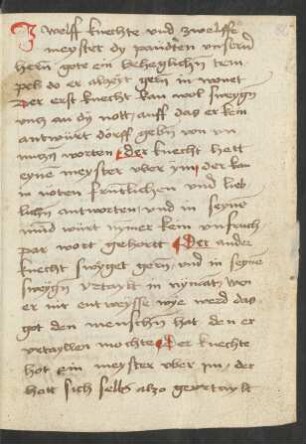 Zwelff knechte vnd zwelffe
meyster dy paudten vnserm
herrn gote ein beheglichn tem
pel do er alczeyt gern in wonet
Der erst knecht kan wol sweygn
vnd an dy nott auff das er kein
antwurt dorff gebn von vn
nuczn worten der knecht hett
eyne meyster vber ym der kan
in noten frutlichen vnd lieb
lichn antworten vnd in seyne
mund wurt nymer kein vnfruch
par wort gehortt Der ander
knecht swyget gern vnd in seyne
sweygn vrtaylt in nymat wen
er nit entweysse wye werd das
got den menschn hat den er
vrtayllen mochte Der knechte
hot ein meyster vber im der
hatt sich selbs also gevrtaylt